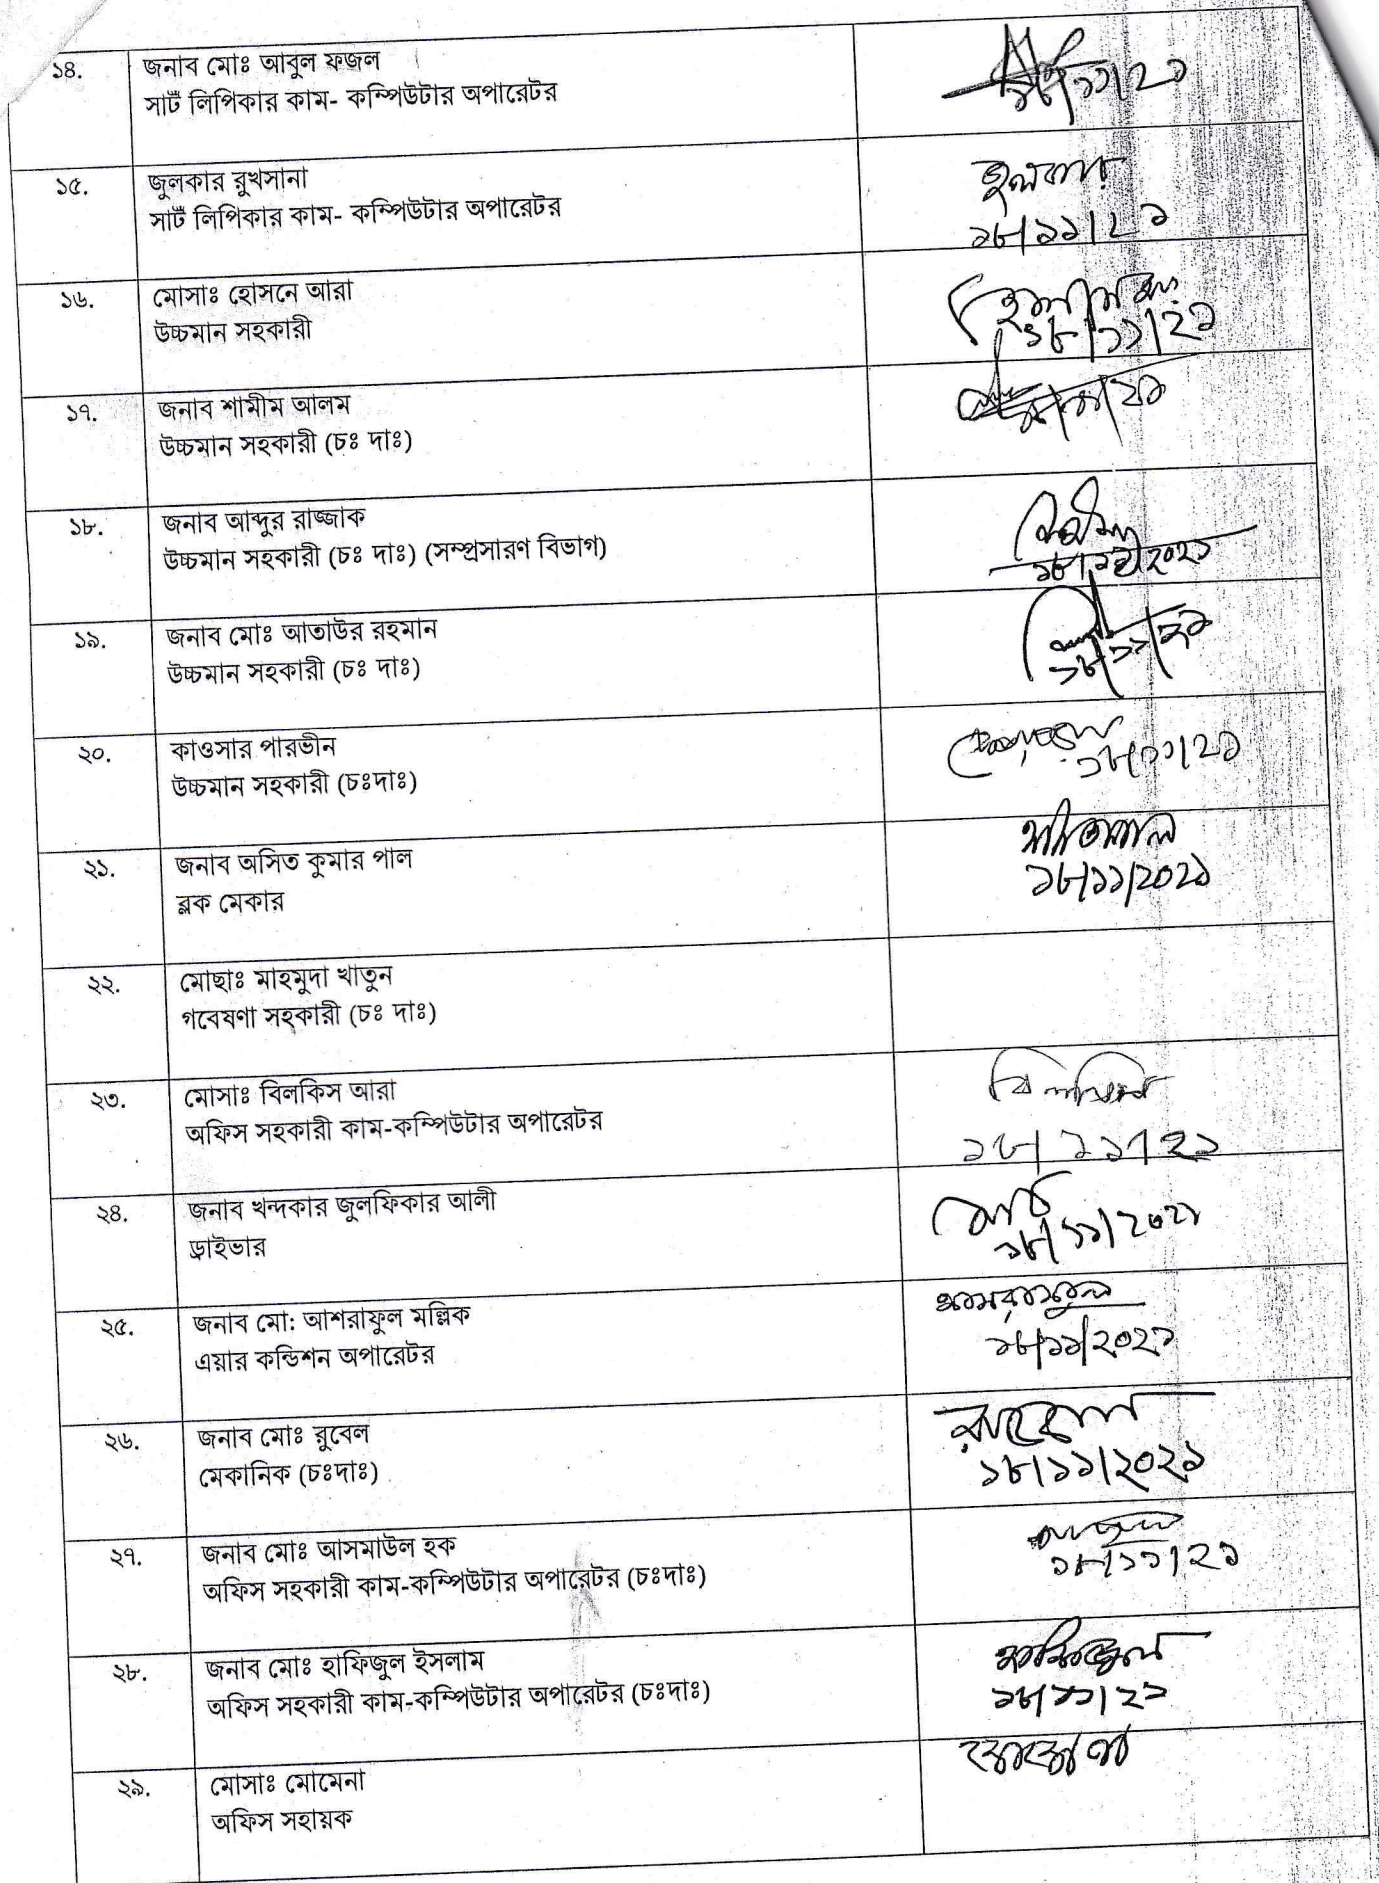 ১৪.
জনাব মোঃ আবুল ফজল
সাট লিপিকার কাম- কম্পিউটার অপারেটর
১৮/১১/২১
১৫.
জুলকার রুখসানা
সাট লিপিকার কাম- কম্পিউটার অপারেটর
জুলকার
১৮/১১/২১
১৬.
মোসাঃ হোসনে আরা
উচ্চমান সহকারী
১৮/১১/২১
১৭.
জনাব শামীম আলম
উচ্চমান সহকারী (চঃ দাঃ)
১৮/১১/২১
১৮.
জনাব আব্দুর রাজ্জাক
উচ্চমান সহকারী (চঃ দাঃ) (সম্প্রসারণ বিভাগ)
১৮/১১/২০২১
১৯.
জনাব মোঃ আতাউর রহমান
উচ্চমান সহকারী (চঃ দাঃ)
১৮/১১/২১
২০.
কাওসার পারভীন
উচ্চমান সহকারী (চঃদাঃ)
১৮/১১/২১
২১.
জনাব অসিত কুমার পাল
ব্লক মেকার
অসিতপাল
১৮/১১/২০২১
২২.
মোছাঃ মাহমুদা খাতুন
গবেষণা সহকারী (চঃ দাঃ)
২৩.
মোসাঃ বিলকিস আরা
অফিস সহকারী কাম-কম্পিউটার অপারেটর
বিলকিস
১৮/১১/২১
২৪.
জনাব খন্দকার জুলফিকার আলী
ড্রাইভার
১৮/১১/২০২১
২৫.
জনাব মো: আশরাফুল মল্লিক
এয়ার কন্ডিশন অপারেটর
১৮/১১/২০২১
২৬.
জনাব মোঃ রুবেল
মেকানিক (চঃদাঃ)
১৮/১১/২০২১
২৭.
জনাব মোঃ আসমাউল হক
অফিস সহকারী কাম-কম্পিউটার অপারেটর (চঃদাঃ)
১৮/১১/২১
২৮.
জনাব মোঃ হাফিজুল ইসলাম
অফিস সহকারী কাম-কম্পিউটার অপারেটর (চঃদাঃ)
হাফিজুল
১৮/১১/২১
২৯.
মোসাঃ মোমেনা
অফিস সহায়ক
মোমেনা